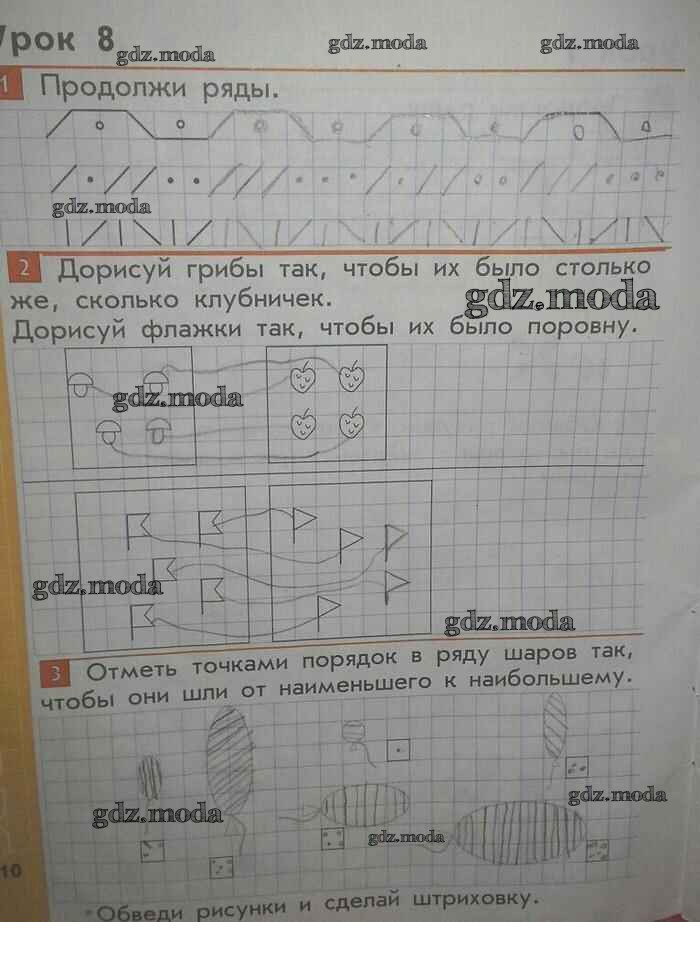 Урок 8
gdz.moda
gdz.moda
gdz.moda
1 Продолжи ряды.
gdz.moda
2 Дорисуй грибы так, чтобы их было столько
же, сколько клубничек.
gdz.moda
Дорисуй флажки так, чтобы их было поровну.
gdz.moda
gdz.moda
gdz.moda
3 Отметь точками порядок в ряду шаров так,
чтобы они шли от наименьшего к наибольшему.
gdz.moda
gdz.moda
gdz.moda
10
*Обведи рисунки и сделай штриховку.